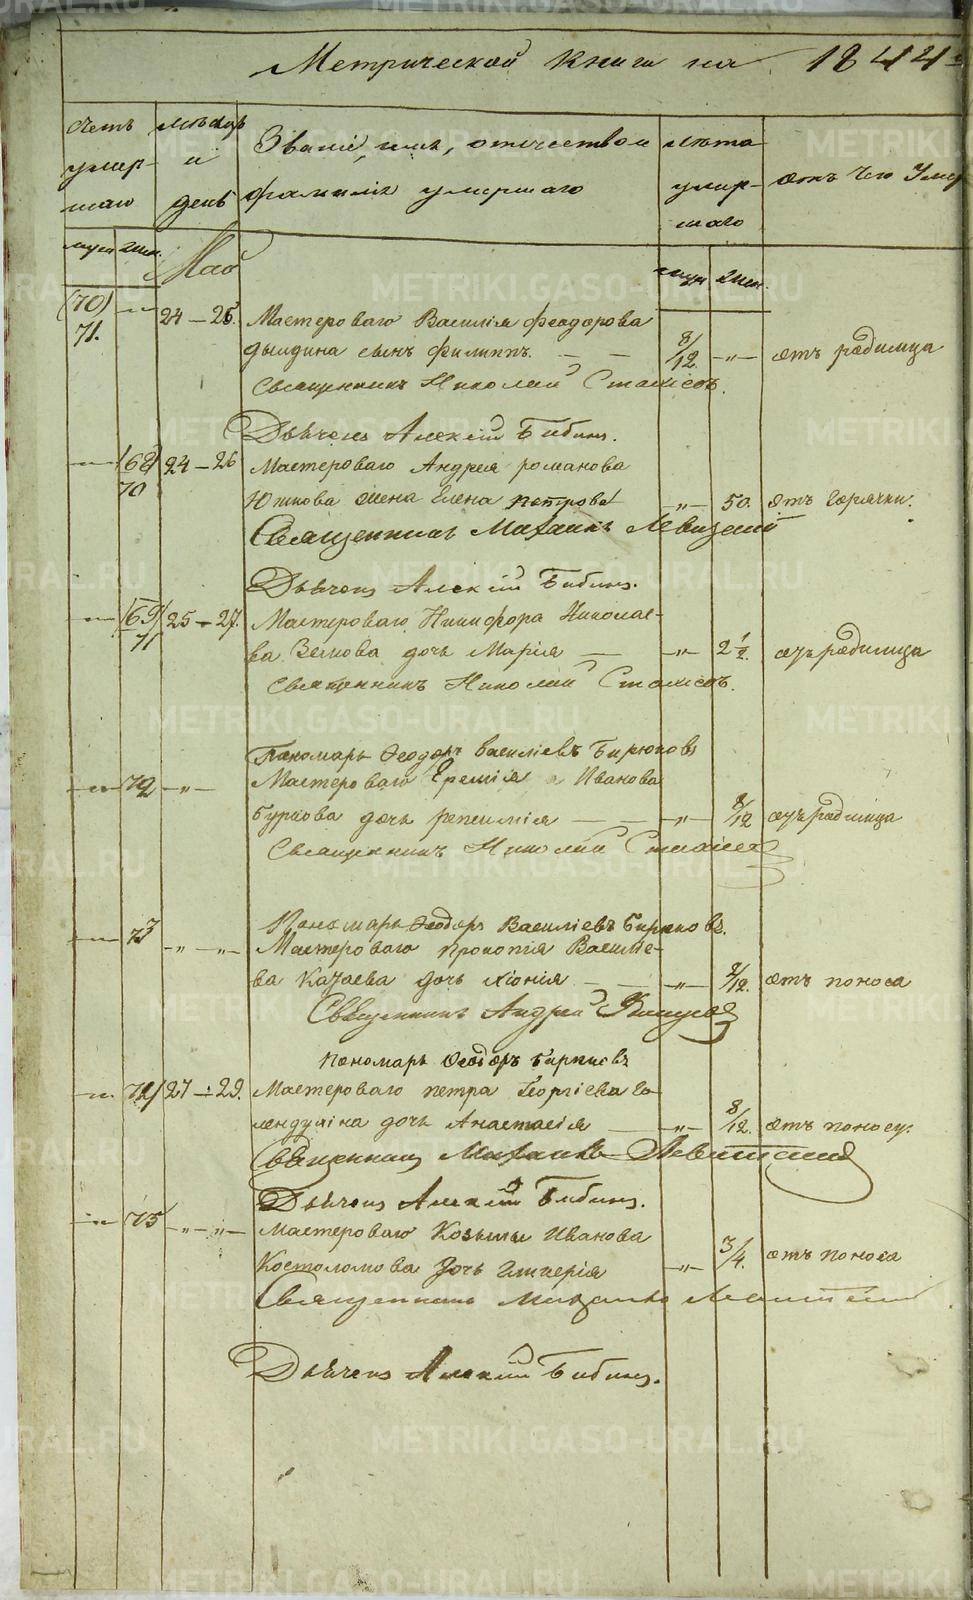 Метрической книги на 1844
Счетъ умер-шаго
мѣсяцъ и день
Званіе, имя, отечество и фамилія умершаго
лѣта умер-шаго
отъ чего Умер
муж жен.
Май
муж жен.
(70) 71. -"- 24 — 26. Мастероваго Василія Феодорова
дылдина сынъ Филиппъ. — — 8/12. -"- отъ родимца
Священникъ Николай
Дьячекъ Алексій Бибинъ.
-"- (68) 70 24 — 26 Мастероваго Андрея романова
Юткова жена Елена петрова -"- 50. отъ Горячки.
Священникъ Михаилъ Левицкій
Дьячекъ Алексій Бибинъ.
-"- (69) 71 25 — 27. Мастероваго Никифора Николае-
ва Зыкова дочь Марія — -"- 2 1/2. отъ родимца
Священникъ Николай
Пономарь Феодоръ Василіевъ Бирюковъ
-"- 72 -"- Мастероваго Еремія Иванова
Буркова дочь — — -"- 8/12 отъ родимца
Священникъ Николай
Пономарь Феодоръ Василіевъ Бирюковъ.
-"- 73 -"- -"- Мастероваго прокопія Василіе-
ва Казаева дочь Хіонія — -"- 2/12. отъ поноса
Священникъ Андрей
пономарь Феодоръ Бирюковъ
-"- 74 27 — 29. Мастероваго петра Георгіева Га-
лендухина дочь Анастасія — -"- 8/12. отъ поносу.
Священникъ Михаилъ Левитскій
Дьячекъ Алексій Бибинъ.
-"- 75 -"- -"- Мастероваго Козьмы Иванова
Костоломова дочь Гликерія -"- 3/4. отъ поноса
Священникъ Михаилъ Левитскій
Дьячекъ Алексій Бибинъ.
METRIKI.GASO-URAL.RU